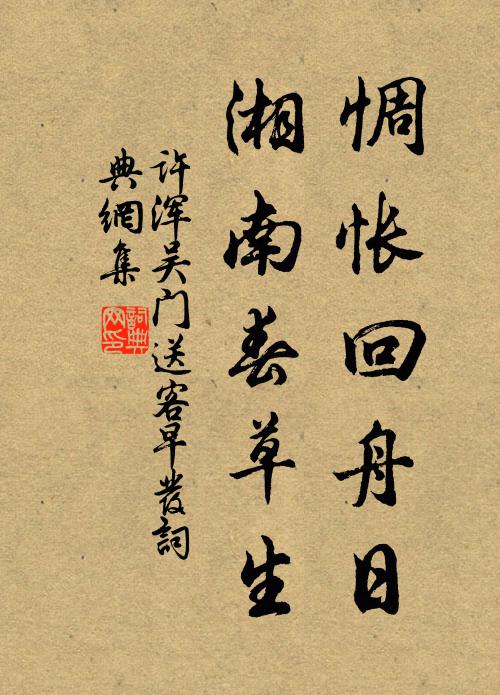 惆怅回舟日
湘南春草生
许浑吴门送客早发詞
典網集
詞典
网印